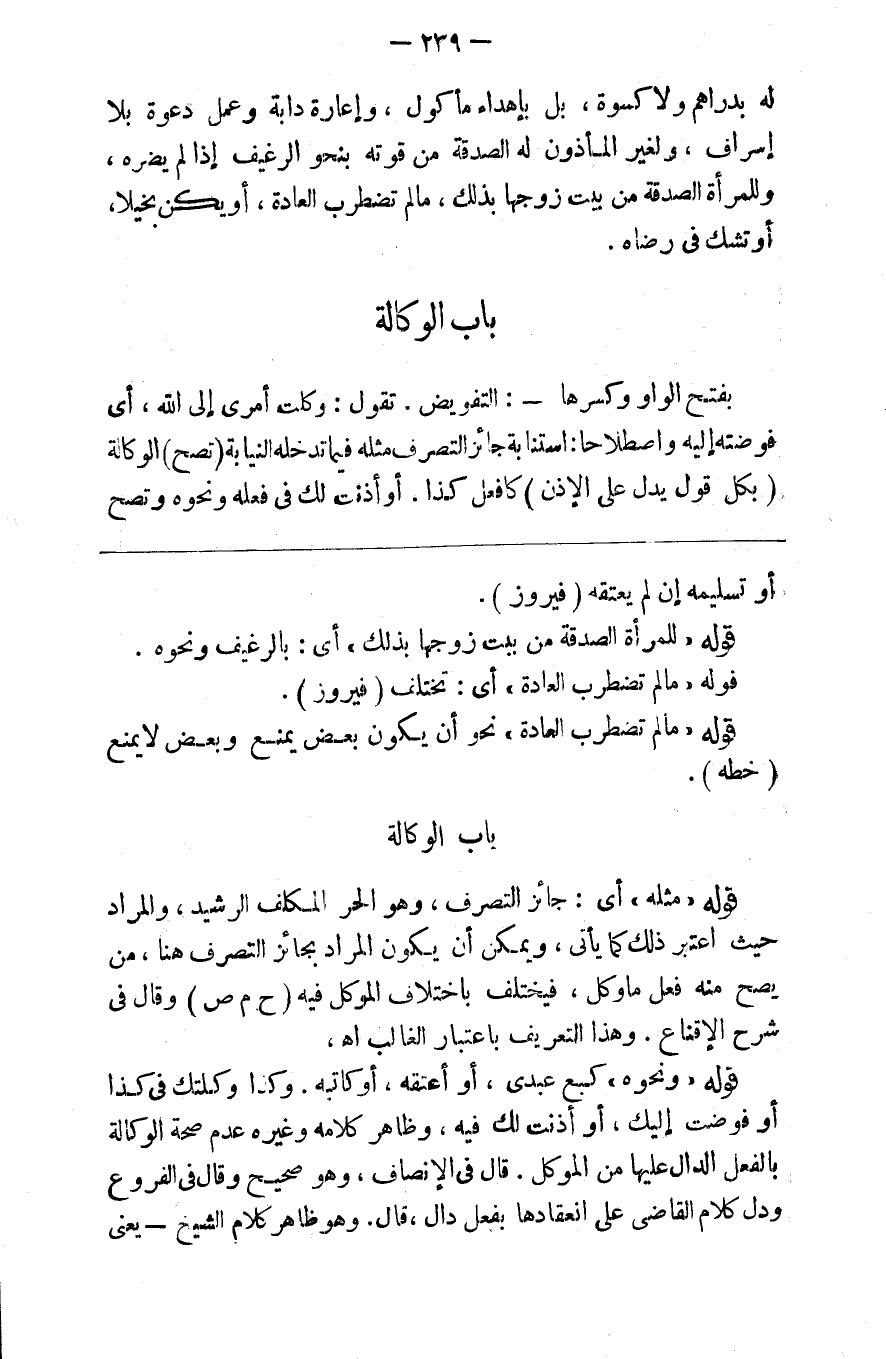 — ٢٣٩ —
له بدراهم ولا كسوة ، بل بإهداء مأكول ، وإعارة دابة وعمل دعوة بلا
إسراف ، ولغير المأذون له الصدقة من قوته بنحو الرغيف إذا لم يضره ،
وللمرأة الصدقة من بيت زوجها بذلك ، مالم تضطرب العادة ، أو يكن بخيلا،
أو تشك فى رضاه .
باب الوكالة
بفتح الواو وكسرها — : التفويض . تقول : وكلت أمرى إلى الله ، أى
فوضته إليه واصطلاحا : استنابة جائز التصرف مثله فيما تدخله النيابة (تصح) الوكالة
( بكل قول يدل على الإذن ) كافعل كذا . أو أذنت لك فى فعله ونحوه وتصح
أو تسليمه إن لم يعتقه ( فيروز ) .
قوله « للمرأة الصدقة من بيت زوجها بذلك » أى : بالرغيف ونحوه .
فوله « مالم تضطرب العادة » أى : تختلف ( فيروز ) .
قوله « مالم تضطرب العادة » نحو أن يكون بعض يمنع وبعض لايمنع
( خطه ) .
باب الوكالة
قوله « مثله » أى : جائز التصرف ، وهو الحر المكلف الرشيد ، والمراد
حيث اعتبر ذلك كما يأتى ، ويمكن أن يكون المراد بجائز التصرف هنا ، من
يصح منه فعل ماوكل ، فيختلف باختلاف الموكل فيه ( ح م ص ) وقال فى
شرح الإقناع . وهذا التعريف باعتبار الغالب اه ،
قوله « ونحوه » كبع عبدى ، أو أعتقه ، أو كاتبه . وكذا وكلتك فى كذا
أو فوضت إليك ، أو أذنت لك فيه ، وظاهر كلامه وغيره عدم صحة الوكالة
بالفعل الدال عليها من الموكل . قال فى الإنصاف ، وهو صحيح وقال فى الفروع
ودل كلام القاضى على انعقادها بفعل دال ،قال. وهو ظاهر كلام الشيخ — يعنى